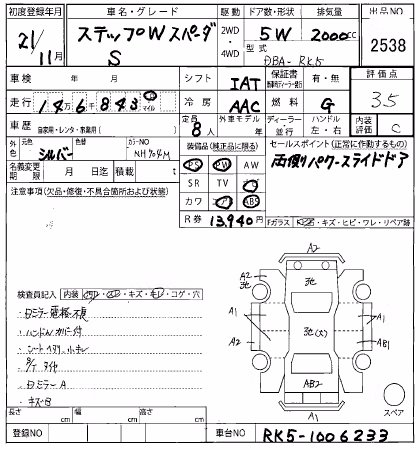 初度登録年月 車名・グレード 駆動 ドア数・形状 排気量 出品NO
21/11月 ステップWスパーダ S 2WD 4WD 5W 2000cc 2538
型式 DBA-RK5
車検 年 月 シフト IAT 保証書 有・無 評価点
走行 14万6千843 マイル 冷房 AAC 燃料 G 3.5
車歴 自家用・レンタ・事業用( ) 定員 8人 外車モデル 年 ディーラー・並行 ハンドル 左・右 内装評価 C
外色 元色 シルバー 色替 カラーNO NH704M 装備品(純正品に限る) セールスポイント(正常に作動するもの)
名義変更期限 月 日迄 積載 t PS PW AW 両側パワースライドドア
注意事項(欠品・修復・不具合箇所および状態) SR TV ナビ
カワ エアB ABS
R券 13,940円 Fガラス キズ・ヒビ・ワレ・リペア跡
A2
A2 3化
A1 A1
3化(大)
A2 AB1
AB2
A1
スペア
検査員記入 内装 キズ・キレ・コゲ・穴
ロミラー電格不良
ハンドルカバー付
シート
ロミラーA
キズB
長さ cm 幅 cm 高さ cm
登録NO 車台NO RK5-1006233